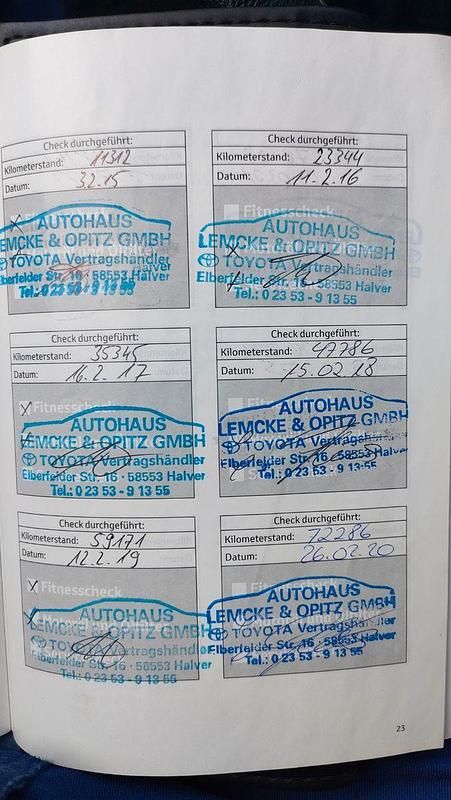 Check durchgeführt:
Kilometerstand: 11312
Datum: 3.2.15
AUTOHAUS
LEMCKE & OPITZ GMBH
TOYOTA Vertragshändler
Elberfelder Str. 16 · 58553 Halver
Tel.: 0 23 53 - 9 13 55
Check durchgeführt:
Kilometerstand: 23344
Datum: 11.2.16
Fitnesscheck
AUTOHAUS
LEMCKE & OPITZ GMBH
TOYOTA Vertragshändler
Elberfelder Str. 16 · 58553 Halver
Tel.: 0 23 53 - 9 13 55
Check durchgeführt:
Kilometerstand: 35345
Datum: 16.2.17
Fitnesscheck
AUTOHAUS
LEMCKE & OPITZ GMBH
TOYOTA Vertragshändler
Elberfelder Str. 16 · 58553 Halver
Tel.: 0 23 53 - 9 13 55
Check durchgeführt:
Kilometerstand: 47786
Datum: 15.02.18
AUTOHAUS
LEMCKE & OPITZ GMBH
TOYOTA Vertragshändler
Elberfelder Str. 16 · 58553 Halver
Tel.: 0 23 53 - 9 13 55
Check durchgeführt:
Kilometerstand: 59171
Datum: 12.2.19
Fitnesscheck
AUTOHAUS
LEMCKE & OPITZ GMBH
TOYOTA Vertragshändler
Elberfelder Str. 16 · 58553 Halver
Tel.: 0 23 53 - 9 13 55
Check durchgeführt:
Kilometerstand: 72286
Datum: 26.02.20
Fitnesscheck
AUTOHAUS
LEMCKE & OPITZ GMBH
TOYOTA Vertragshändler
Elberfelder Str. 16 · 58553 Halver
Tel.: 0 23 53 - 9 13 55
23